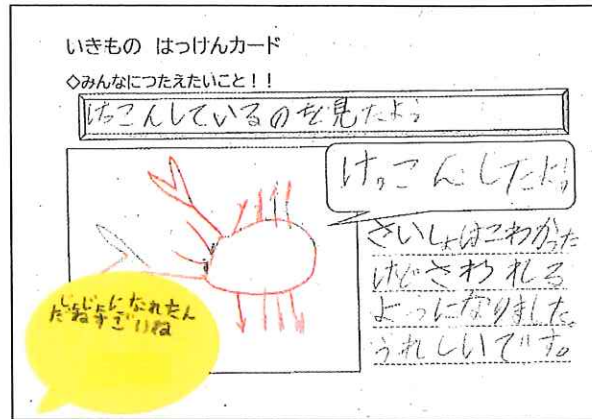 いきもの はっけんカード
◇みんなにつたえたいこと!!
けっこんしているのを見たよ
けっこんしたよ
さいしょはこわかった
けどさわれる
よつになりました。
うれしいです。
じょじょになれたん
だねすごいね